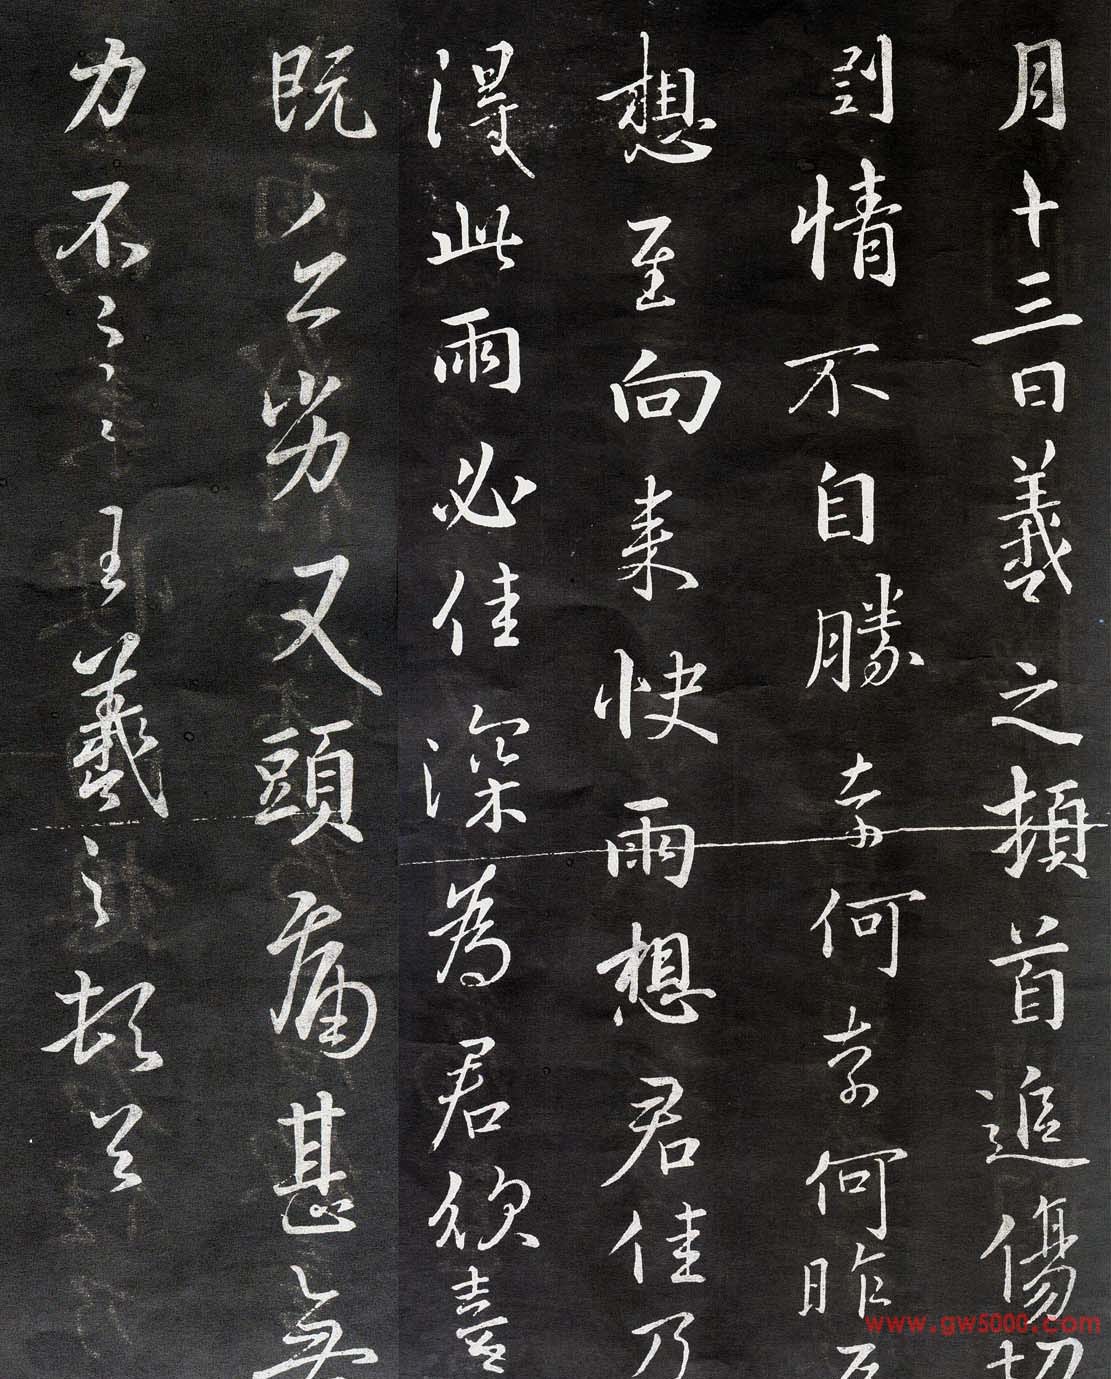 月十三日羲之頓首追傷切
情不自勝奈何奈何昨
想至向来快雨想君佳乃
得此雨必佳深為君欣喜
既劣又頭痛甚無
力不王羲之頓首
www.gw5000.com